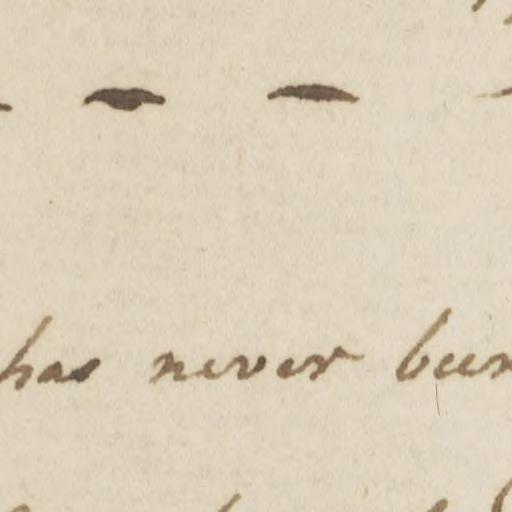 — —
has never been